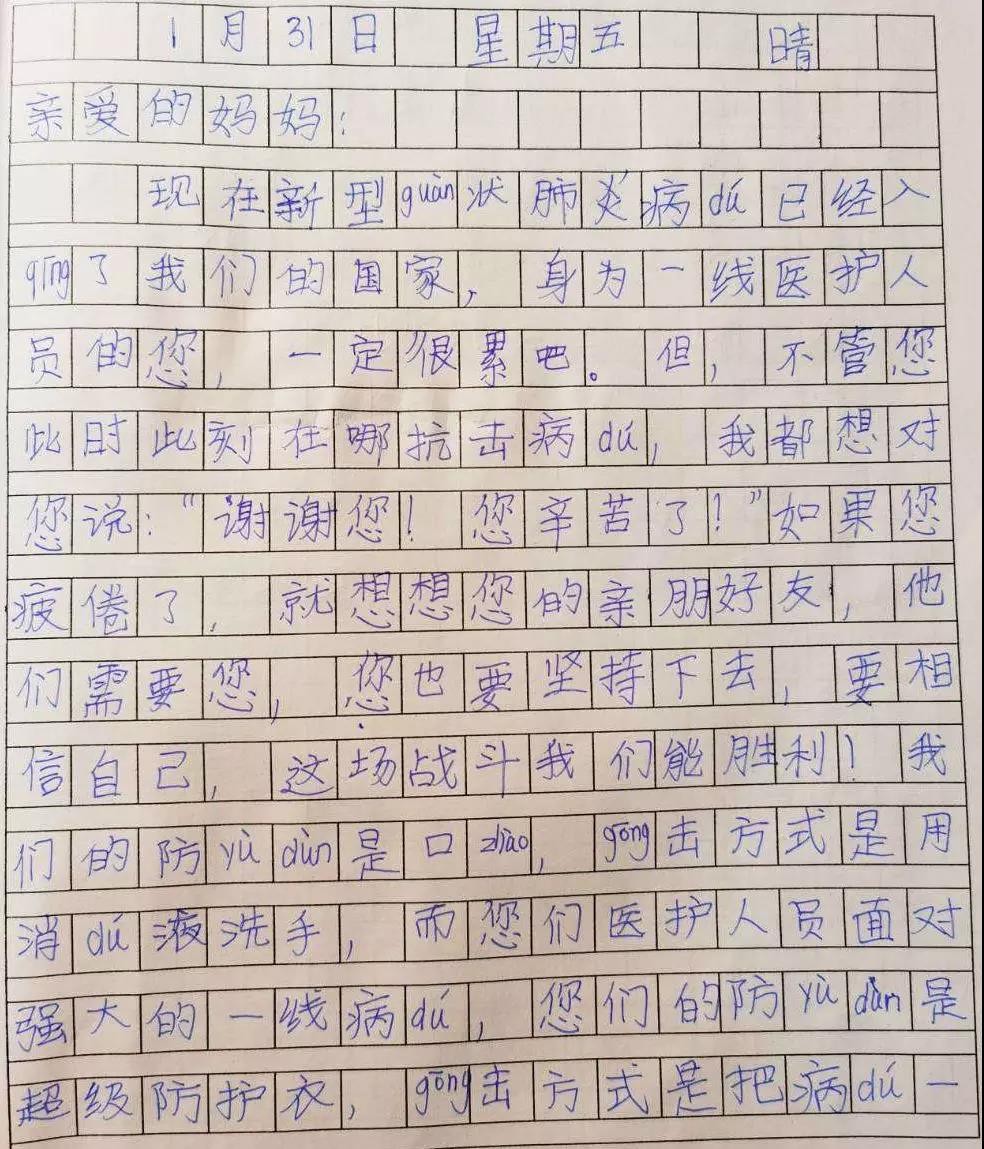 1月31日 星期五 晴
亲爱的妈妈：
现在新型guàn状肺炎病dú已经入
qīng了我们的国家，身为一线医护人
员的您，一定很累吧。但，不管您
此时此刻在哪抗击病dú，我都想对
您说：“谢谢您！您辛苦了！”如果您
疲倦了，就想想您的亲朋好友，他
们需要您，您也要坚持下去，要相
信自己，这场战斗我们能胜利！我
们的防yùdùn是口zhào，gōng击方式是用
消dú液洗手，而您们医护人员面对
强大的一线病dú，您们的防yùdùn是
超级防护衣，gōng击方式是把病dú一